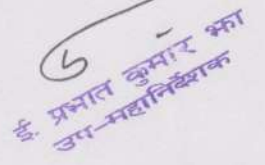 ई. प्रभात कुमार झा
उप-महानिर्देशक